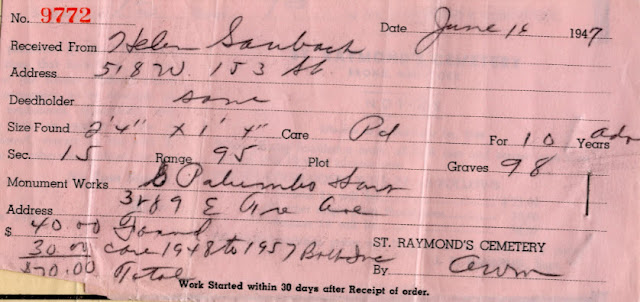 No. 9772 Date June 16 1947
Received From Helen Saubach
Address 518 W. 153 St.
Deedholder same
Size Found 2'4" x 1'4" Care Pd For 10 Years
Sec. 15 Range 95 Plot Graves 98
Monument Works Palumbo Sons
Address 3289 E Ave
$ 40.00 Found
30.00 care 1948 to 1957 Both Inc ST. RAYMOND'S CEMETERY
$70.00 Total By
Work Started within 30 days after Receipt of order.